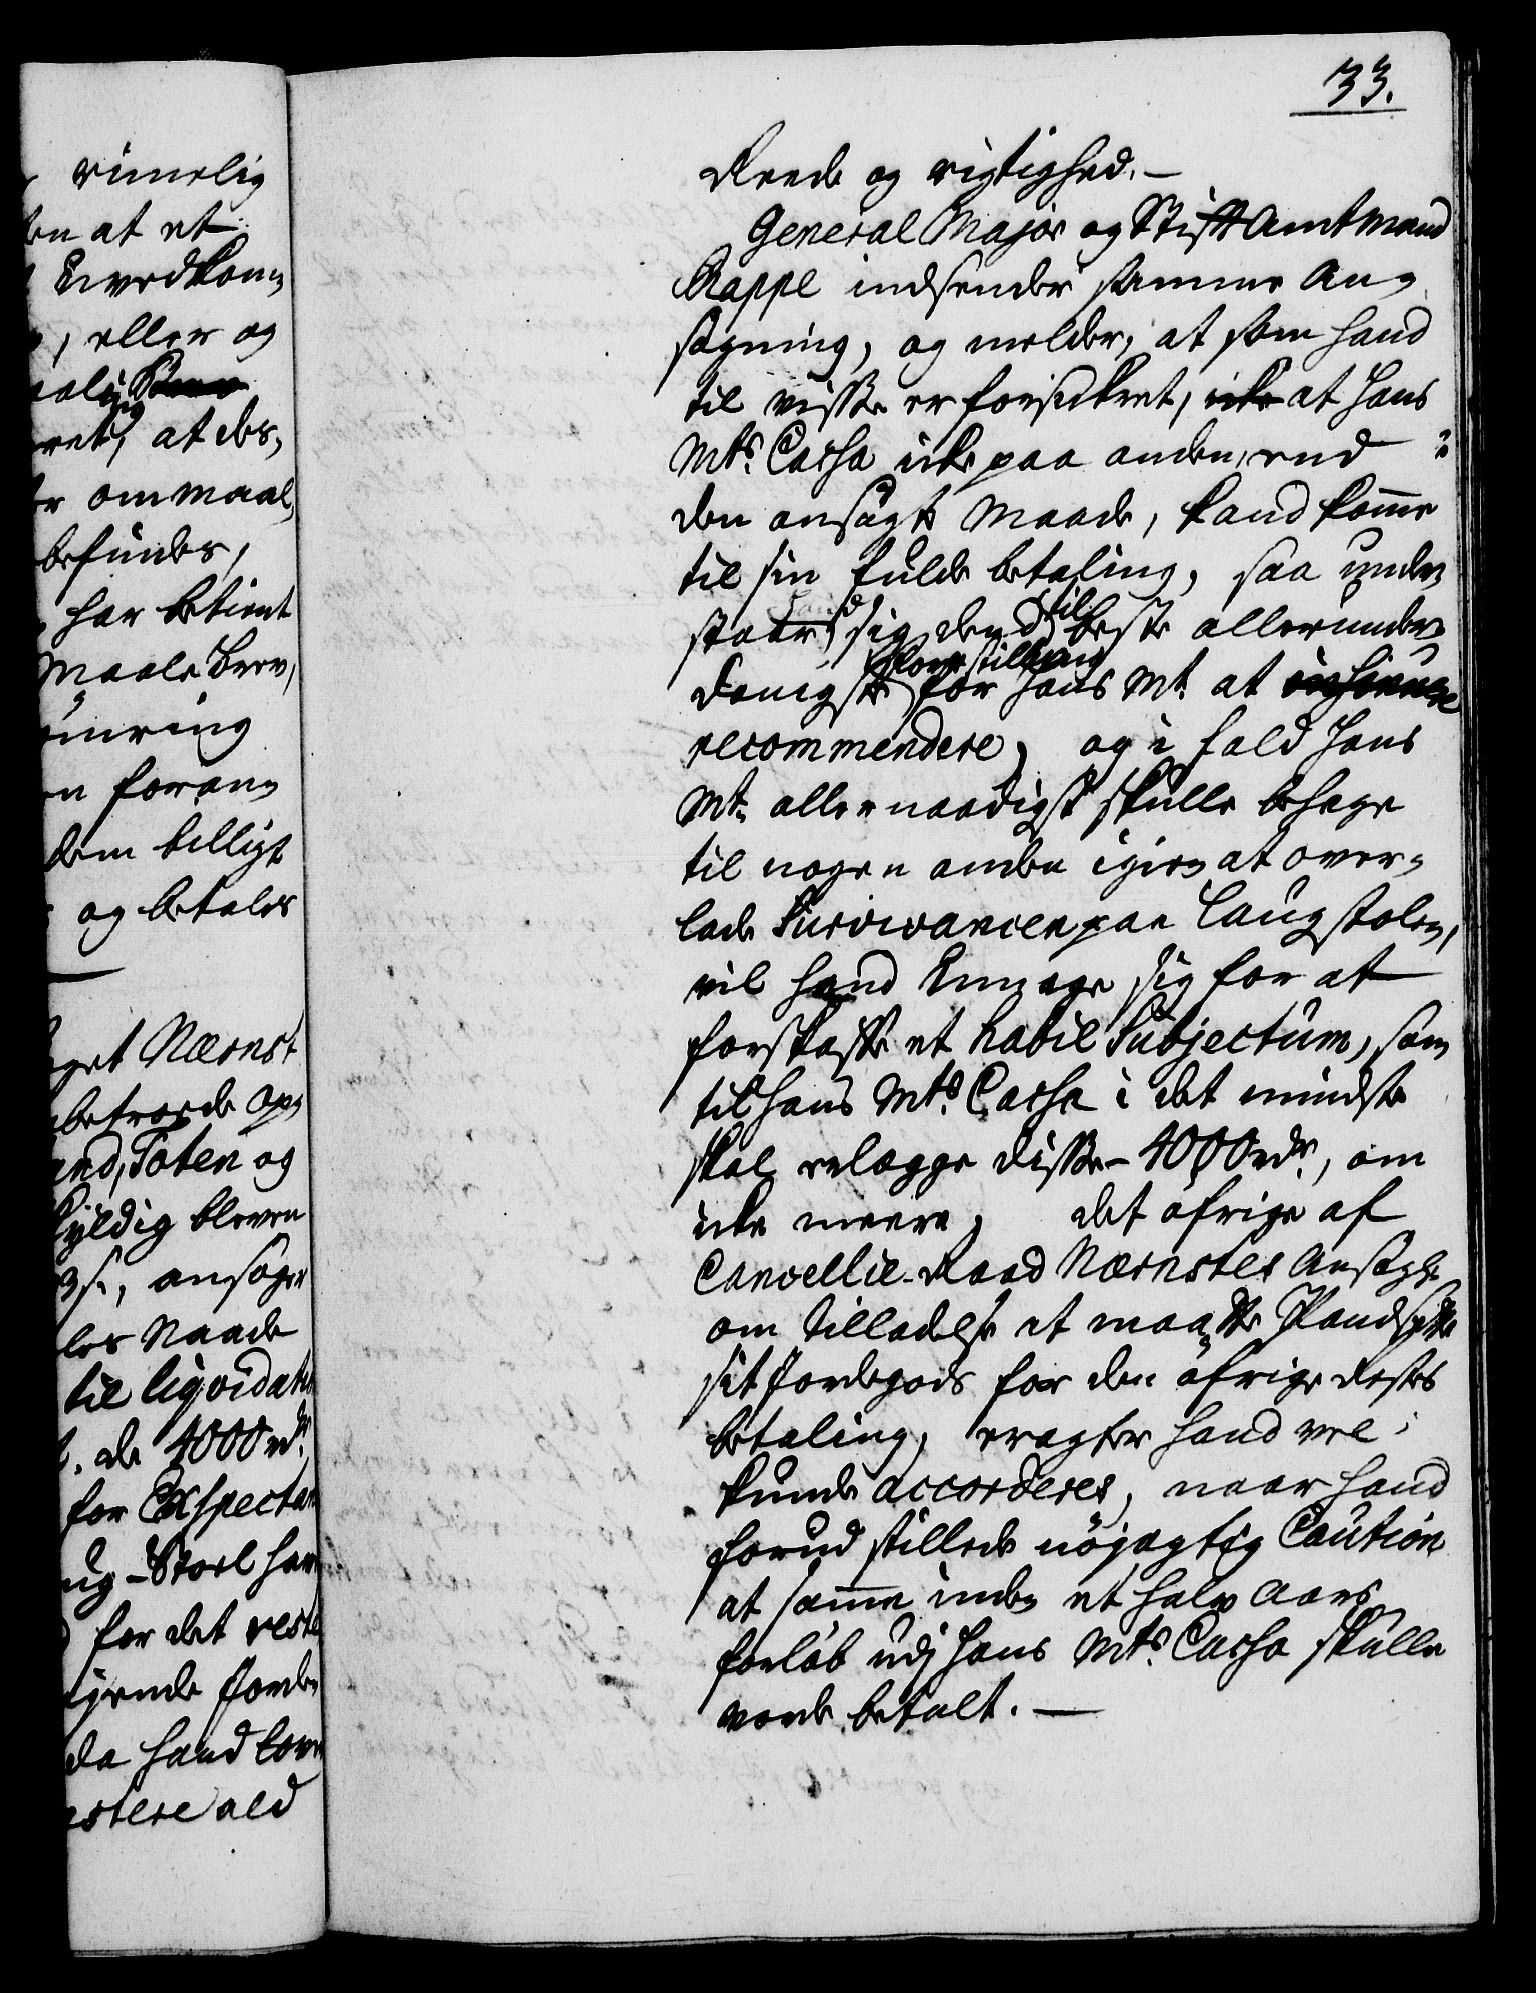 rimelig
en at et
Uvedkom-
, eller og
at des,
er ommaal,
befindes,
har betient
Maale brev,
foran-
dem billigt
og betales
Nærnst
betroede op-
and, Toten og
skyldig bleven
3 s., ansøger
les Naade
til liqvidation
t. de 4000 rdr.
for Expectan
ug-Stoel har
for det reste
da hand love
ald
33.
Reede og rigtighed. —
General Major og Stift Amtmand
Rappe indsender samme An-
søgning, og melder, at som hand
til visse er forsikret, at Hans
Mts. Cassa icke paa anden, end
den ansøgte Maade, kand komme
til sin fulde betaling, saa under-
staaer hand sig dend til beste allerunder-
danigst forestilling for Hans Mt. at
recommendere, og i fald Hans
Mt. allernaadigst skulle behage
til nogen anden igien at over-
lade Survivancen paa Laugstolen,
vil hand Engagere sig for at
forskaffe et habil Subjectum, som
til Hans Mts. Cassa i det mindste
skal erlægge disse 4000 rdr., om
icke meere, det øfrige af
Cancellie-Raad Nærnstes Ansøgn.
om tilladelse at maatte Pandsætte
sit Jordegods for den øfrige Restes
betaling, eragter hand vel
kunde accorderes, naar hand
forud stillede nøjagtig Caution
at samme inden et halv Aars
forløb udj Hans Mts. Cassa skulle
vorde betalt. —